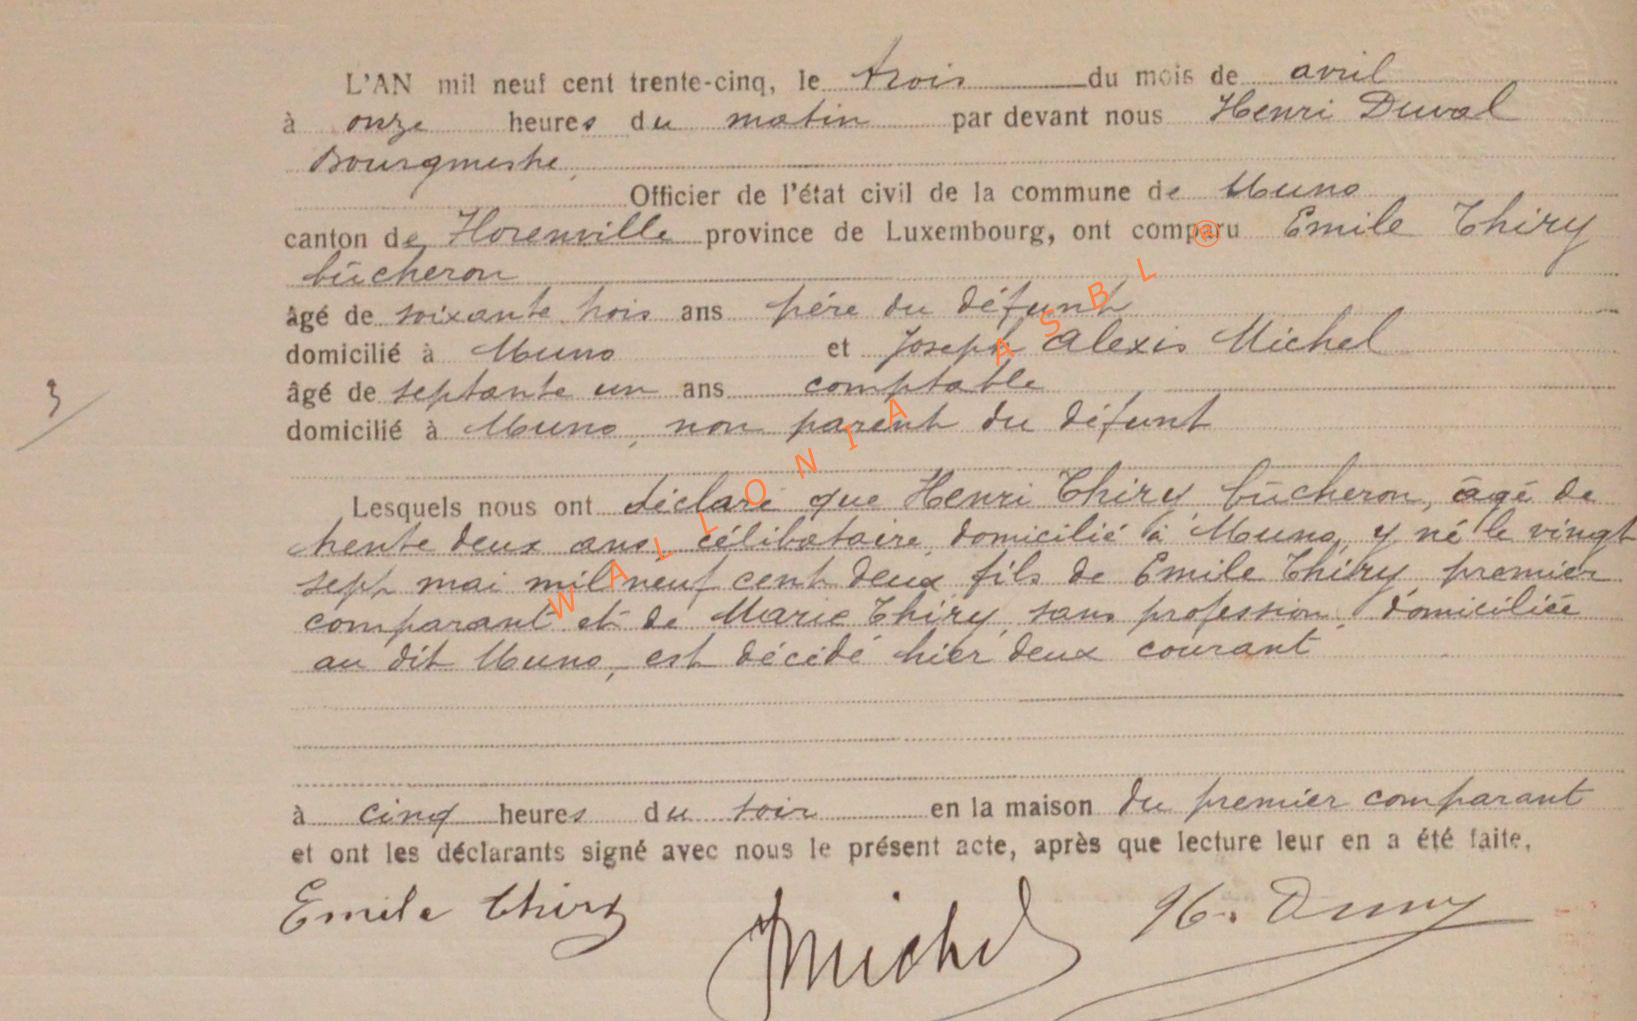 L'AN mil neuf cent trente-cinq, le trois du mois de avril
à onze heures du matin par devant nous Henri Duval
Bourgmestre,
Officier de l'état civil de la commune de Muno
canton de Florenville province de Luxembourg, ont comparu Emile Thiry
bûcheron
âgé de soixante trois ans père du défunt
domicilié à Muno et Joseph Alexis Michel
âgé de septante un ans comptable
domicilié à Muno, non parent du défunt
3
Lesquels nous ont déclaré que Henri Thiry, bûcheron, âgé de
trente deux ans, célibataire, domicilié à Muno, y né le vingt
sept mai mil neuf cent deux fils de Emile Thiry, premier
comparant et de Marie Thiry, sans profession, domiciliée
au dit Muno, est décédé hier deux courant
à cinq heures du soir en la maison du premier comparant
et ont les déclarants signé avec nous le présent acte, après que lecture leur en a été faite.
Emile Thiry JMichel H.
WALLONIA ASBL ®